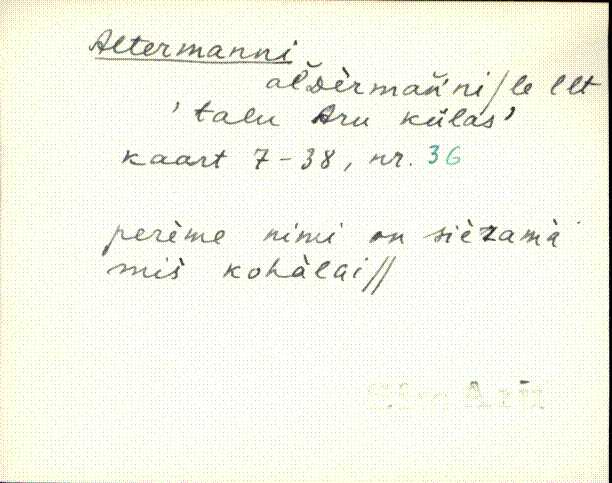 Altermanni
al̆Dèrmañ'ni/le llt
'talu Aru külas'
kaart 7-38, nr. 36
perème nimi on sièzamà
miš kohàlai//